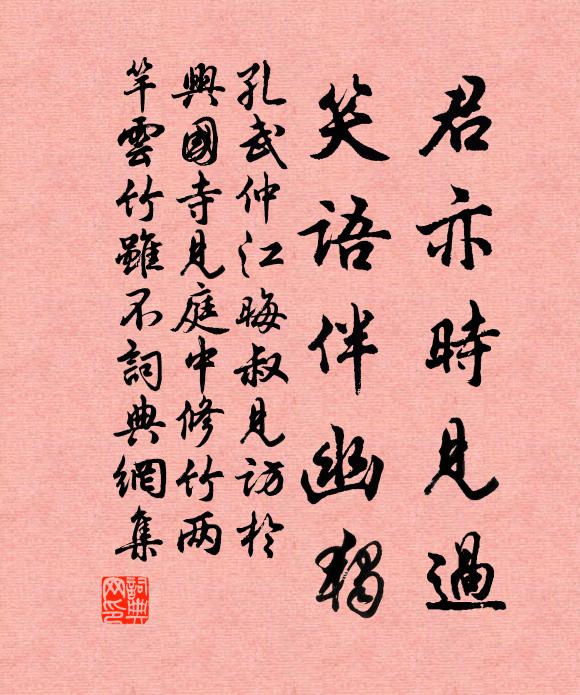 君亦時見過
笑語伴幽獨
孔武仲江晦叔見訪於
興國寺見庭中修竹两
竿雲竹雖不詞典網集
詞典
网印